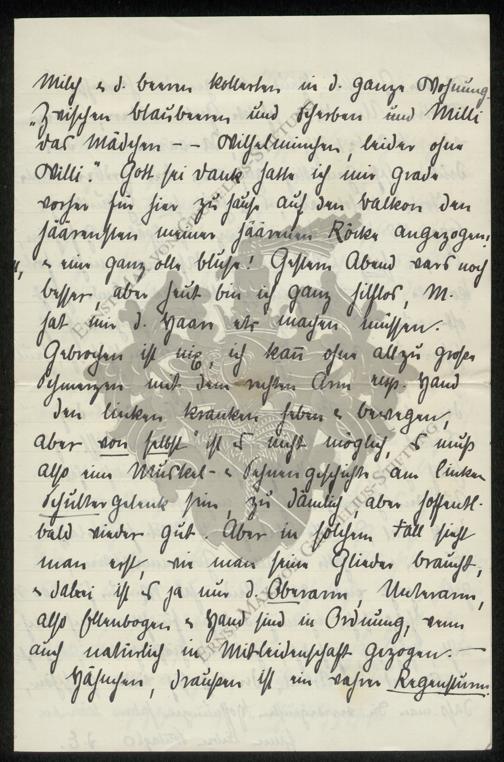 Milch & d. beeren kollerten in d. ganze Wohnung
„Zwischen blaubeeren und Scherben und Milli
das Mädchen –– Wilhelminchen, leider ohne
Willi." Gott sei dank hatte ich mir grade
vorher für hier zu hause auf den balkon den
häärensten meiner häärenen Röcke angezogen,
& eine ganz olle bluse! Gestern Abend wars noch
besser aber heut bin ich ganz hilflos, M.
hat mir d. Haare etc machen müssen.
Gebrochen ist nix, ich kann ohne allzu große
Schmerzen mit dem rechten Arm resp. Hand
den linken kranken heben & bewegen,
aber von selbst ist es nicht möglich, es muß
also eine Muskel- & Sehnengeschichte am linken
Schultergelenk sein, zu dämlich, aber hoffentl.
bald wieder gut. Aber in solchem Fall sieht
man erst, wie man seine Glieder braucht,
& dabei ist es ja nur d. Oberarm, Unterarm,
also Ellenbogen & Hand sind in Ordnung, wenn
auch natürlich in Mitleidenschaft gezogen. —
Hähnchen, draußen ist ein wahrer Regensturm
ERNST MAX VON GRUNELIUS-STIFTUNG
ERNST MAX VON GRUNELIUS-STIFTUNG